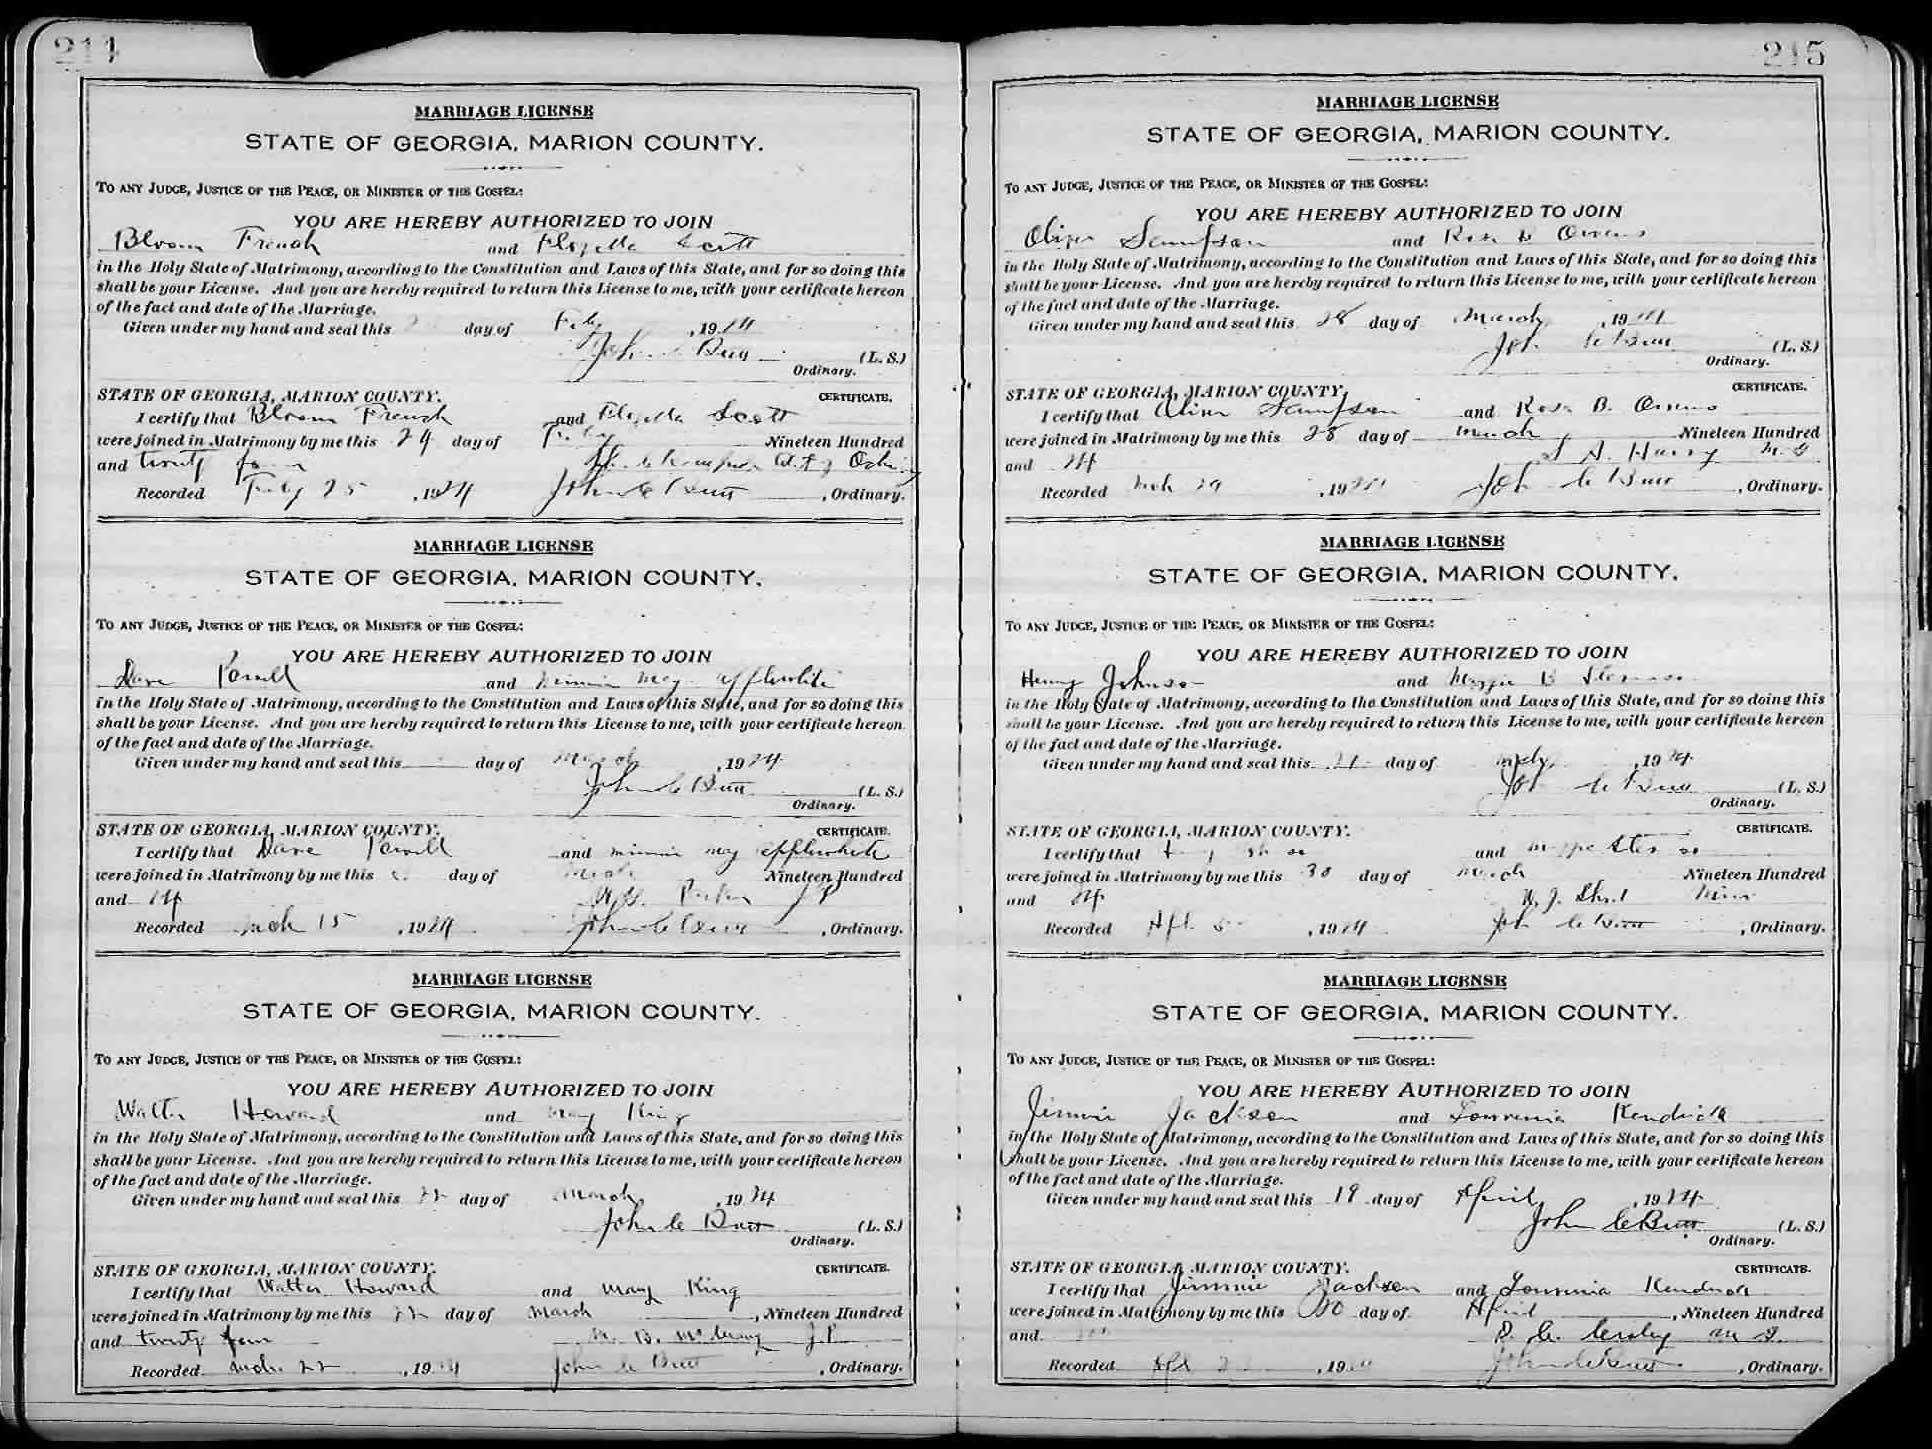 214
MARRIAGE LICENSE
STATE OF GEORGIA, MARION COUNTY.
TO ANY JUDGE, JUSTICE OF THE PEACE, OR MINISTER OF THE GOSPEL:
YOU ARE HEREBY AUTHORIZED TO JOIN
Bloom French and Flozella Scott
in the Holy State of Matrimony, according to the Constitution and Laws of this State, and for so doing this
shall be your License. And you are hereby required to return this License to me, with your certificate hereon
of the fact and date of the Marriage.
Given under my hand and seal this day of Feby , 1924
John C Butt (L. S.)
Ordinary.
STATE OF GEORGIA, MARION COUNTY. CERTIFICATE.
I certify that Bloom French and Flozella Scott
were joined in Matrimony by me this 24 day of Feby Nineteen Hundred
and twenty four
Recorded Feby 25 , 1924 John C Butt , Ordinary.
MARRIAGE LICENSE
STATE OF GEORGIA, MARION COUNTY.
TO ANY JUDGE, JUSTICE OF THE PEACE, OR MINISTER OF THE GOSPEL:
YOU ARE HEREBY AUTHORIZED TO JOIN
Dave Powell and Minnie May Applewhite
in the Holy State of Matrimony, according to the Constitution and Laws of this State, and for so doing this
shall be your License. And you are hereby required to return this License to me, with your certificate hereon
of the fact and date of the Marriage.
Given under my hand and seal this day of March , 1924
John C Butt (L. S.)
Ordinary.
STATE OF GEORGIA, MARION COUNTY. CERTIFICATE.
I certify that Dave Powell and Minnie May Applewhite
were joined in Matrimony by me this day of March Nineteen Hundred
and 24 J P
Recorded Mch 15 , 1924 John C Butt , Ordinary.
MARRIAGE LICENSE
STATE OF GEORGIA, MARION COUNTY.
TO ANY JUDGE, JUSTICE OF THE PEACE, OR MINISTER OF THE GOSPEL:
YOU ARE HEREBY AUTHORIZED TO JOIN
Walter Howard and May King
in the Holy State of Matrimony, according to the Constitution and Laws of this State, and for so doing this
shall be your License. And you are hereby required to return this License to me, with your certificate hereon
of the fact and date of the Marriage.
Given under my hand and seal this 22 day of March , 1924
John C Butt (L. S.)
Ordinary.
STATE OF GEORGIA, MARION COUNTY. CERTIFICATE.
I certify that Walter Howard and May King
were joined in Matrimony by me this 22 day of March , Nineteen Hundred
and twenty four J P
Recorded Mch 22 , 1924 John C Butt , Ordinary.
215
MARRIAGE LICENSE
STATE OF GEORGIA, MARION COUNTY.
TO ANY JUDGE, JUSTICE OF THE PEACE, OR MINISTER OF THE GOSPEL:
YOU ARE HEREBY AUTHORIZED TO JOIN
Oliver Sampson and Rosa B Owens
in the Holy State of Matrimony, according to the Constitution and Laws of this State, and for so doing this
shall be your License. And you are hereby required to return this License to me, with your certificate hereon
of the fact and date of the Marriage.
Given under my hand and seal this 28 day of March , 1924
John C Butt (L. S.)
Ordinary.
STATE OF GEORGIA, MARION COUNTY, CERTIFICATE.
I certify that Oliver Sampson and Rosa B. Owens
were joined in Matrimony by me this 28 day of March Nineteen Hundred
and 24 M G
Recorded Mch 29 , 1924 John C Butt , Ordinary.
MARRIAGE LICENSE
STATE OF GEORGIA, MARION COUNTY.
TO ANY JUDGE, JUSTICE OF THE PEACE, OR MINISTER OF THE GOSPEL:
YOU ARE HEREBY AUTHORIZED TO JOIN
Henry Johnson and B
in the Holy State of Matrimony, according to the Constitution and Laws of this State, and for so doing this
shall be your License. And you are hereby required to return this License to me, with your certificate hereon
of the fact and date of the Marriage.
Given under my hand and seal this day of , 1924
John C Butt (L. S.)
Ordinary.
STATE OF GEORGIA, MARION COUNTY. CERTIFICATE.
I certify that and
were joined in Matrimony by me this 30 day of March Nineteen Hundred
and 24
Recorded Apl 5 , 1924 John C Butt , Ordinary.
MARRIAGE LICENSE
STATE OF GEORGIA, MARION COUNTY.
TO ANY JUDGE, JUSTICE OF THE PEACE, OR MINISTER OF THE GOSPEL:
YOU ARE HEREBY AUTHORIZED TO JOIN
Jimmie Jackson and Louvenia Kendrick
in the Holy State of Matrimony, according to the Constitution and Laws of this State, and for so doing this
shall be your License. And you are hereby required to return this License to me, with your certificate hereon
of the fact and date of the Marriage.
Given under my hand and seal this 19 day of April , 1924
John C Butt (L. S.)
Ordinary.
STATE OF GEORGIA, MARION COUNTY. CERTIFICATE.
I certify that Jimmie Jackson and Louvenia Kendrick
were joined in Matrimony by me this 20 day of April , Nineteen Hundred
and M G.
Recorded Apl , 19 John C Butt , Ordinary.